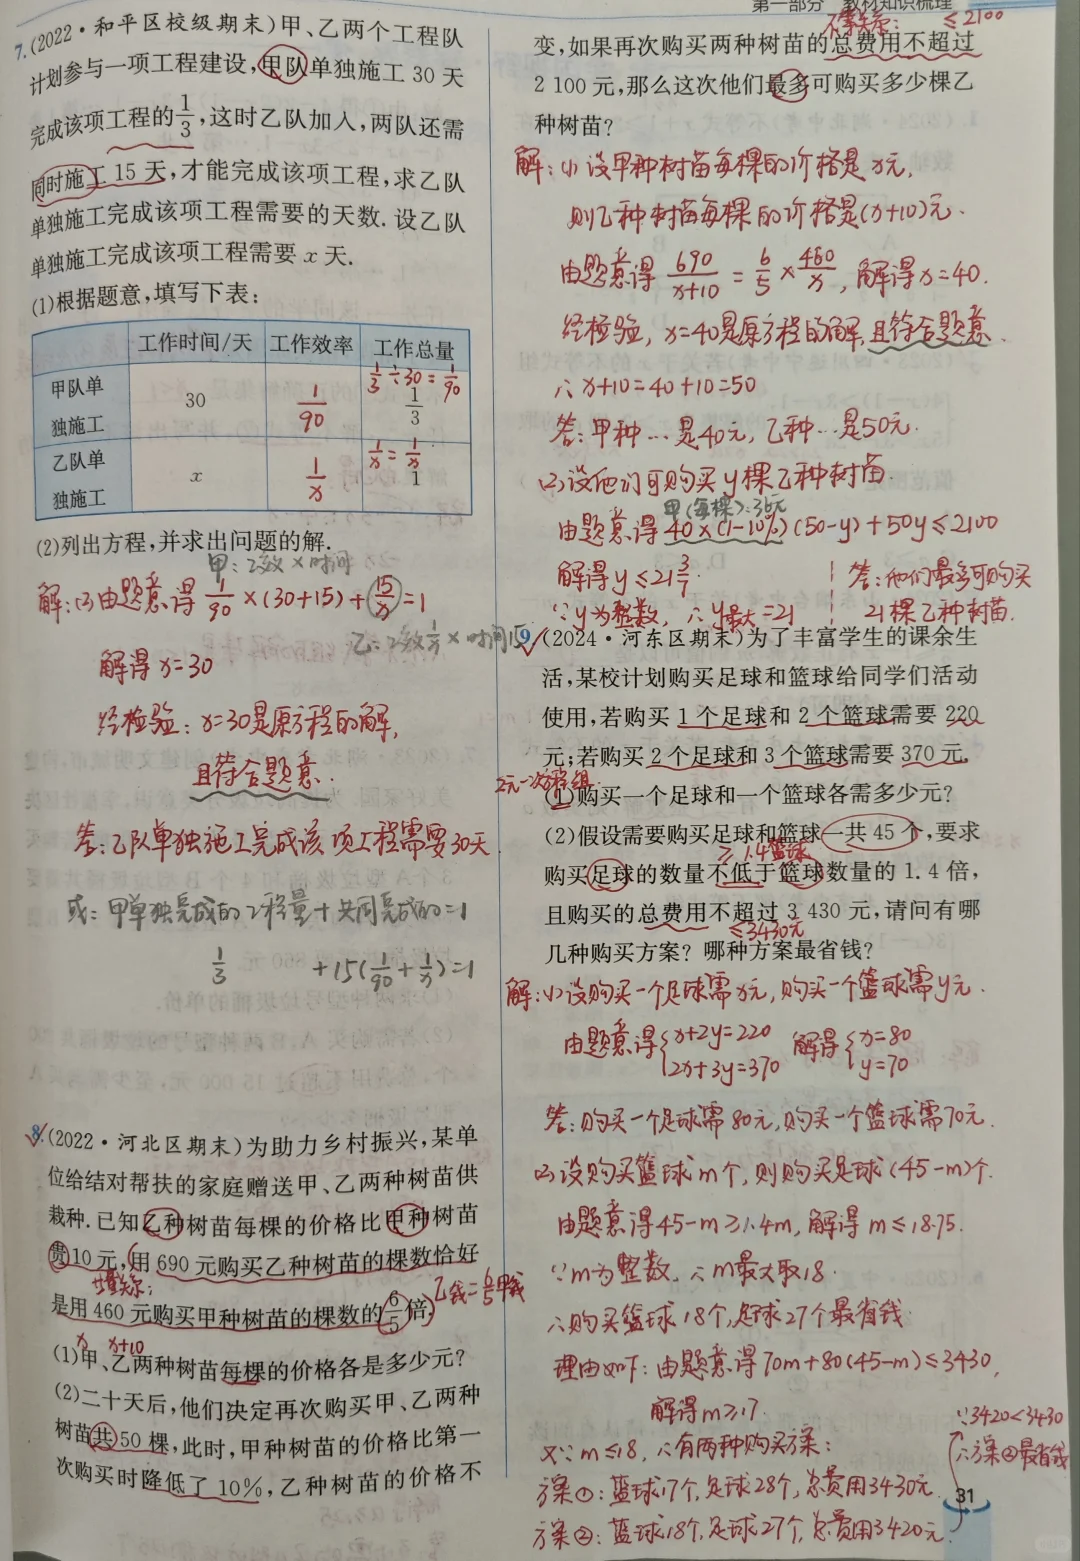 第一部分 教材知识梳理
7.(2022·和平区校级期末)甲、乙两个工程队
计划参与一项工程建设,甲队单独施工 30 天
完成该项工程的1/3,这时乙队加入,两队还需
同时施工 15 天,才能完成该项工程,求乙队
单独施工完成该项工程需要的天数. 设乙队
单独施工完成该项工程需要 x 天.
(1)根据题意,填写下表:
工作时间/天 工作效率 工作总量
1/3÷30=1/90
甲队单独施工 30 1/90 1/3
1/x=1/x
乙队单独施工 x 1/x 1
(2)列出方程,并求出问题的解.
甲:工效×时间
解:(2)由题意得 1/90×(30+15)+15/x=1
乙:工效1/x×时间15
解得x=30
经检验:x=30是原方程的解,
且符合题意.
答:乙队单独施工完成该项工程需要30天
或:甲单独完成的工程量+共同完成的=1
1/3 +15(1/90+1/x)=1
8.(2022·河北区期末)为助力乡村振兴,某单
位给结对帮扶的家庭赠送甲、乙两种树苗供
栽种. 已知乙种树苗每棵的价格比甲种树苗
贵10 元,用 690 元购买乙种树苗的棵数恰好
是用 460 元购买甲种树苗的棵数的6/5倍.
x x+10
(1)甲、乙两种树苗每棵的价格各是多少元?
(2)二十天后,他们决定再次购买甲、乙两种
树苗共50 棵,此时,甲种树苗的价格比第一
次购买时降低了 10%,乙种树苗的价格不
不等关系: ≤2100
变,如果再次购买两种树苗的总费用不超过
2 100 元,那么这次他们最多可购买多少棵乙
种树苗?
解:(1)设甲种树苗每棵的价格是x元,
则乙种树苗每棵的价格是(x+10)元.
由题意得 690/(x+10)=6/5×460/x,解得x=40.
经检验,x=40是原方程的解,且符合题意.
∴x+10=40+10=50
答:甲种…是40元,乙种…是50元.
(2)设他们可购买y棵乙种树苗.
甲(每棵):36元
由题意得 40×(1-10%)(50-y)+50y≤2100
解得y≤21 3/7.
∵y为整数,∴y最大=21
答:他们最多可购买
21棵乙种树苗.
9.(2024·河东区期末)为了丰富学生的课余生
活,某校计划购买足球和篮球给同学们活动
使用,若购买 1 个足球和 2 个篮球需要 220
元;若购买 2 个足球和 3 个篮球需要 370 元.
2元一次方程组
(1)购买一个足球和一个篮球各需多少元?
(2)假设需要购买足球和篮球一共 45 个,要求
≥1.4篮球
购买足球的数量不低于篮球数量的 1.4 倍,
且购买的总费用不超过 3 430 元,请问有哪
≤3430元
几种购买方案? 哪种方案最省钱?
解:(1)设购买一个足球需x元,购买一个篮球需y元.
由题意得{x+2y=220 解得{x=80
2x+3y=370 y=70
答:购买一个足球需80元,购买一个篮球需70元.
(2)设购买篮球m个,则购买足球(45-m)个.
由题意得45-m≥1.4m,解得m≤18.75.
∵m为整数,∴m最大取18.
∴购买篮球18个,足球27个最省钱
理由如下:由题意得70m+80(45-m)≤3430,
解得m≥17.
又∵m≤18,∴有两种购买方案:
方案①:篮球17个,足球28个,总费用3430元.
方案②:篮球18个,足球27个,总费用3420元.
∵3420<3430
∴方案②最省钱
31